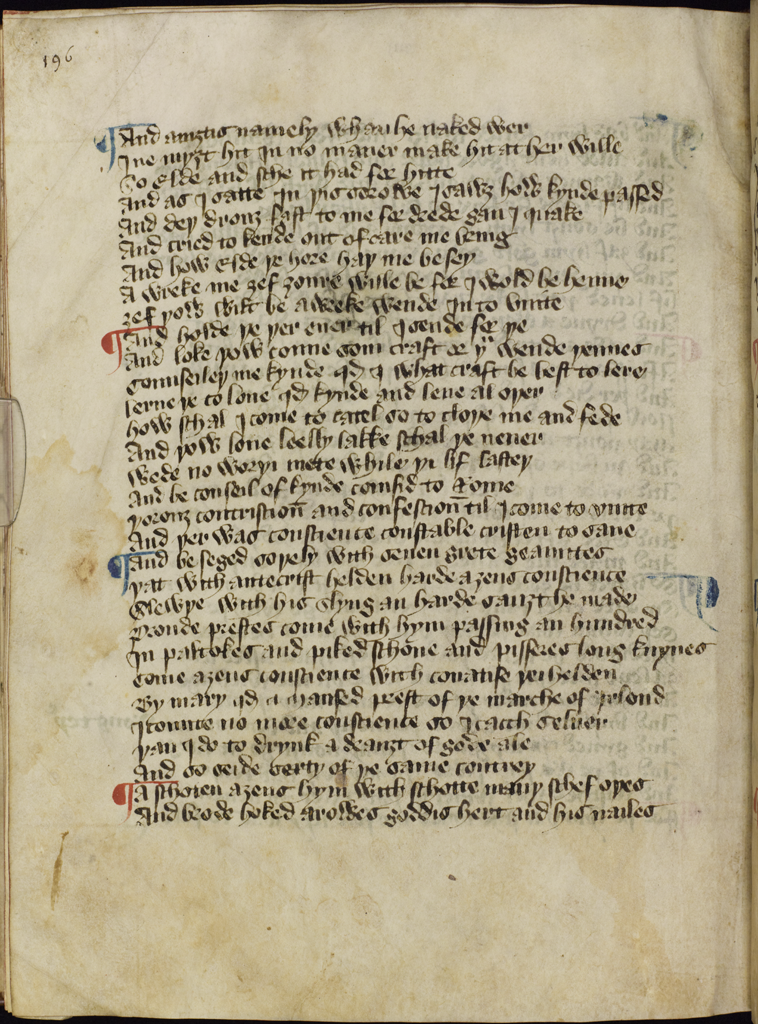 196
And anȝtis namely whan he naked wer
I ne myȝt hit in no maner make hit at her wille
So Elde and sche it had for hitte
And as I satte in þis sorowe I sawȝ how kynde passed
And deþ drouȝ fast to me for drede gan I quake
And cried to kende out of care me breng
And how Elde þe hore haþ me besey
A wreke me ȝef ȝoure wille be for I wold be henne
ȝef þow wilt be a wreke wende in to vnite
And holde þe þer euer til I sende for þe
And loke þow conne som craft or þu wende þennes
Counseileþ me kynde qd I what craft be best to lere
lerne þe to loue qd kynde and leue al oþer
how schal I come to catel so to cloþe me and fede
And þow loue leelly lakke schal þe neuer
wede no worþi mete while þi lif lasteþ
And be conseil of kynde comsid to Rome
þorouȝ contriscion and confession til I come to vnite
And þer was conscience constable cristen to saue
And be seged soþely with seuen grete geauntes
þat with antecrist helden harde aȝens conscience
Slewþe with his slyng an harde sauȝt he made
Proude prestes come with hym passing an hundred
In paltokes and piked schone and pisseres long knyues
Come aȝens conscience with couatise þei helden
By mary qd a mansed prest of þe marche of yrlond
I counte no more conscience so I cacch seluer
þan I do to drynk a drauȝt of gode ale
And so seide sexty of þe same contrey
A schoten aȝens hym with schotte many schef oþes
And brode hoked arowes goddis hert and his nailes